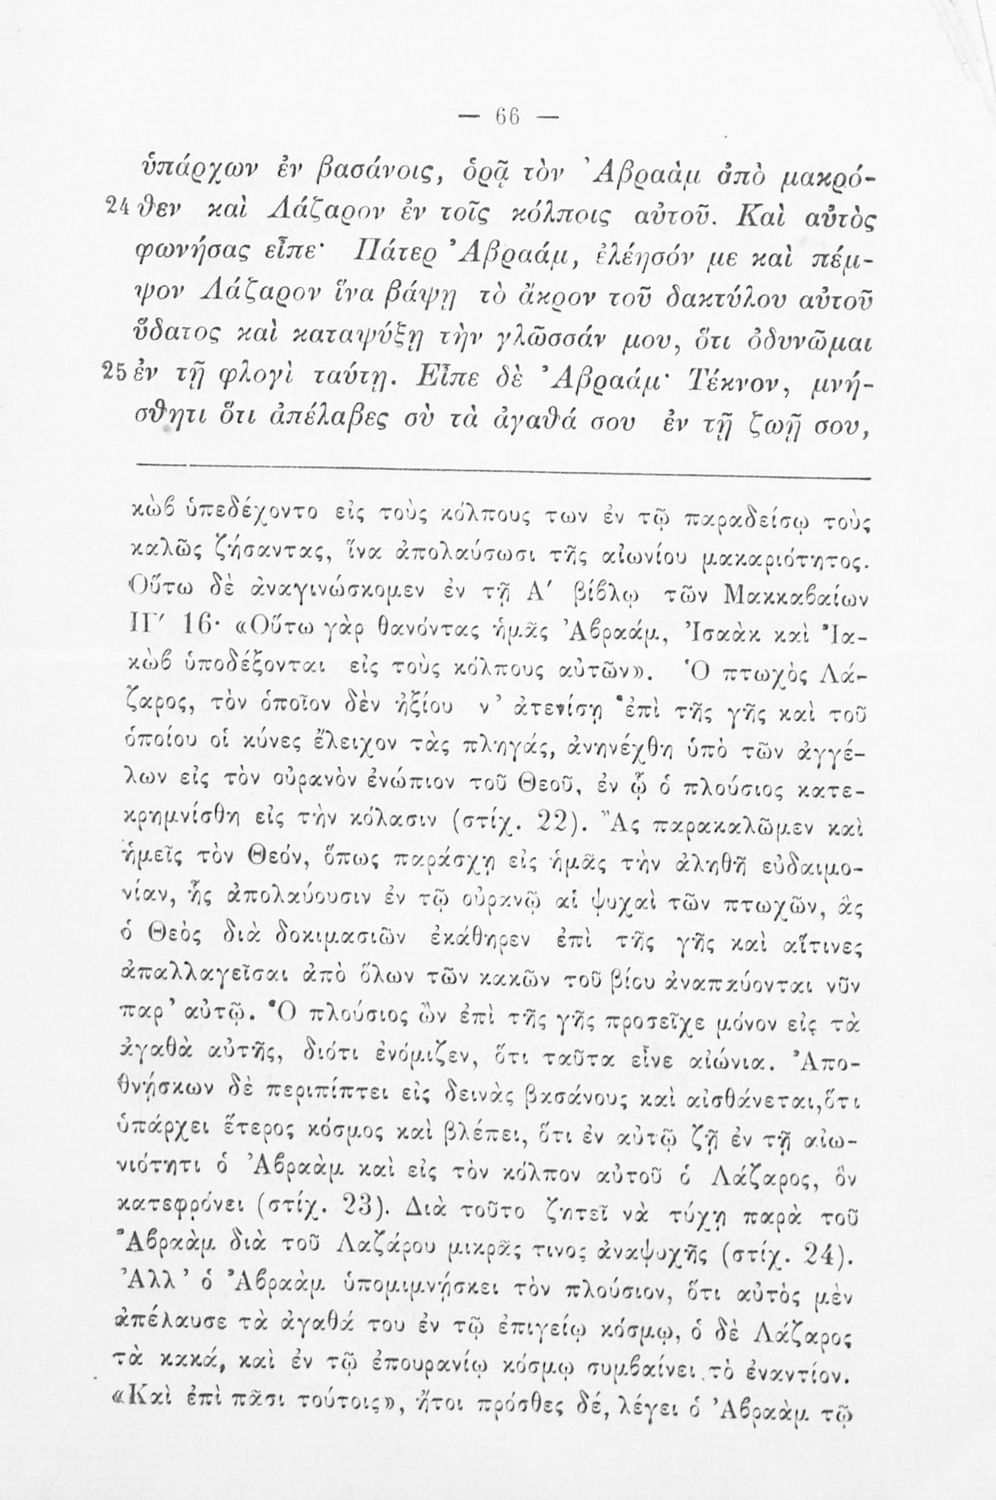 — 66 —
ὑπάρχων ἐν βασάνοις, ὁρᾷ τὸν Ἀβραὰμ ἀπὸ μακρό-
24 θεν καὶ Λάζαρον ἐν τοῖς κόλποις αὐτοῦ. Καὶ αὐτὸς
φωνήσας εἶπε· Πάτερ Ἀβραάμ, ἐλέησόν με καὶ πέμ-
ψον Λάζαρον ἵνα βάψῃ τὸ ἄκρον τοῦ δακτύλου αὐτοῦ
ὕδατος καὶ καταψύξῃ τὴν γλῶσσάν μου, ὅτι ὀδυνῶμαι
25 ἐν τῇ φλογὶ ταύτῃ. Εἶπε δὲ Ἀβραάμ· Τέκνον, μνή-
σθητι ὅτι ἀπέλαβες σὺ τὰ ἀγαθά σου ἐν τῇ ζωῇ σου,
κὼβ ὑπεδέχοντο εἰς τοὺς κόλπους των ἐν τῷ παραδείσῳ τοὺς
καλῶς ζήσαντας, ἵνα ἀπολαύσωσι τῆς αἰωνίου μακαριότητος.
Οὕτω δὲ ἀναγινώσκομεν ἐν τῇ Α′ βίβλῳ τῶν Μακκαβαίων
ΙΓ′ 16· «Οὕτω γὰρ θανόντας ἡμᾶς Ἀβραάμ, Ἰσαὰκ καὶ Ἰα-
κὼβ ὑποδέξονται εἰς τοὺς κόλπους αὐτῶν». Ὁ πτωχὸς Λά-
ζαρος, τὸν ὁποῖον δὲν ἠξίου ν’ ἀτενίσῃ ἐπὶ τῆς γῆς καὶ τοῦ
ὁποίου οἱ κύνες ἔλειχον τὰς πληγάς, ἀνηνέχθη ὑπὸ τῶν ἀγγέ-
λων εἰς τὸν οὐρανὸν ἐνώπιον τοῦ Θεοῦ, ἐν ᾧ ὁ πλούσιος κατε-
κρημνίσθη εἰς τὴν κόλασιν (στίχ. 22). Ἂς παρακαλῶμεν καὶ
ἡμεῖς τὸν Θεόν, ὅπως παράσχῃ εἰς ἡμᾶς τὴν ἀληθῆ εὐδαιμο-
νίαν, ἧς ἀπολαύουσιν ἐν τῷ οὐρανῷ αἱ ψυχαὶ τῶν πτωχῶν, ἃς
ὁ Θεὸς διὰ δοκιμασιῶν ἐκάθηρεν ἐπὶ τῆς γῆς καὶ αἵτινες
ἀπαλλαγεῖσαι ἀπὸ ὅλων τῶν κακῶν τοῦ βίου ἀναπαύονται νῦν
παρ’ αὐτῷ. Ὁ πλούσιος ὢν ἐπὶ τῆς γῆς προσεῖχε μόνον εἰς τὰ
ἀγαθὰ αὐτῆς, διότι ἐνόμιζεν, ὅτι ταῦτα εἶνε αἰώνια. Ἀπο-
θνήσκων δὲ περιπίπτει εἰς δεινὰς βασάνους καὶ αἰσθάνεται, ὅτι
ὑπάρχει ἕτερος κόσμος καὶ βλέπει, ὅτι ἐν αὐτῷ ζῇ ἐν τῇ αἰω-
νιότητι ὁ Ἀβραὰμ καὶ εἰς τὸν κόλπον αὐτοῦ ὁ Λάζαρος, ὃν
κατεφρόνει (στίχ. 23). Διὰ τοῦτο ζητεῖ νὰ τύχῃ παρὰ τοῦ
Ἀβραὰμ διὰ τοῦ Λαζάρου μικρᾶς τινος ἀναψυχῆς (στίχ. 24).
Ἀλλ’ ὁ Ἀβραὰμ ὑπομιμνήσκει τὸν πλούσιον, ὅτι αὐτὸς μὲν
ἀπέλαυσε τὰ ἀγαθά του ἐν τῷ ἐπιγείῳ κόσμῳ, ὁ δὲ Λάζαρος
τὰ κακά, καὶ ἐν τῷ ἐπουρανίῳ κόσμῳ συμβαίνει τὸ ἐναντίον.
«Καὶ ἐπὶ πᾶσι τούτοις», ἤτοι πρόσθες δέ, λέγει ὁ Ἀβραὰμ τῷ